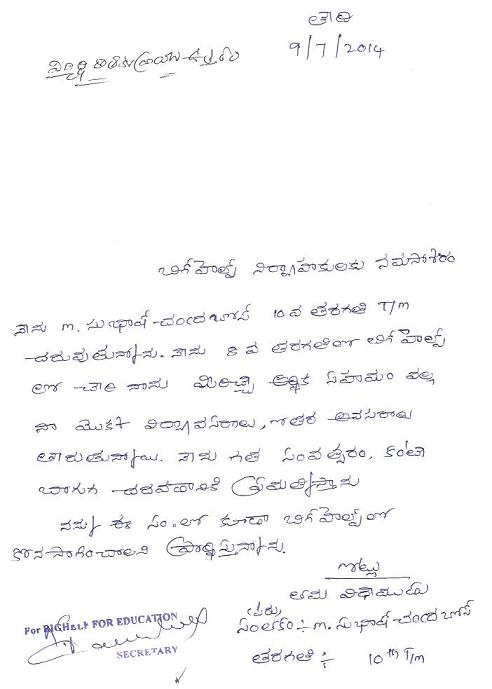 తేది
9/7/2014
బిగ్ హెల్ప్ నిర్వాహకులకు నమస్కారం
నేను m. సుభాష్ చంద్రబోస్ 10 వ తరగతి T/m
చదువుతున్నాను. నేను 8 వ తరగతిలో బిగ్ హెల్ప్
లో చేరి నాకు ఆర్థిక సహాయం వల్ల
నా యొక్క విద్యావసరాలు, ఇతర అవసరాలు
తీరుతున్నాయి. నేను గత సంవత్సరం, కంటే
బాగుగ చదవడానికి ప్రయత్నిస్తాను
నన్ను ఈ సం.లో కూడా బిగ్ హెల్ప్ లో
కొనసాగించాలని ప్రార్థిస్తున్నాను.
ఇట్లు
తమ విధేయుడు
(పేరు)
సంతకం :- m. సుభాష్ చంద్రబోస్
తరగతి :- 10th T/m
For BIGHELP FOR EDUCATION
SECRETARY